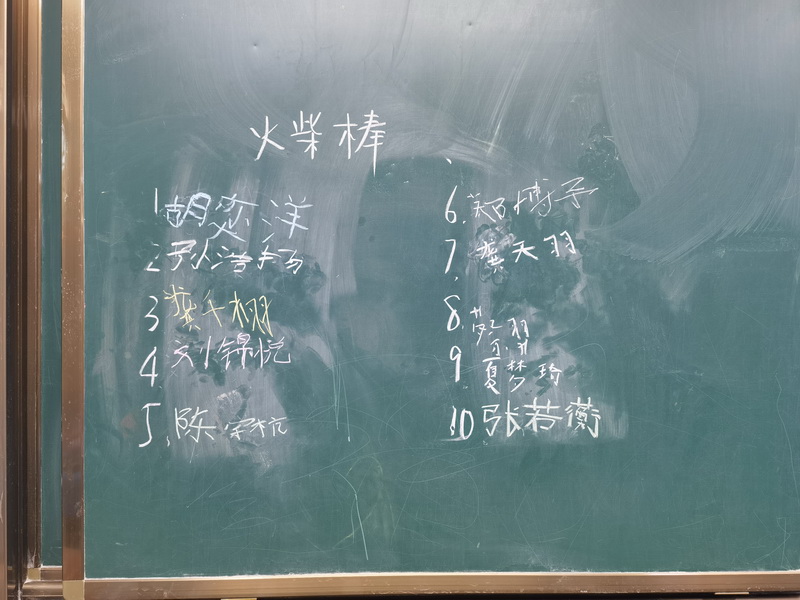 火柴棒
1 胡恋洋
2 孙浩扬
3 龚千栩
4 刘锦悦
5. 陈宇杭
6. 郑博予
7 龚天羽
8.
9 夏梦琦
10 张若蘅